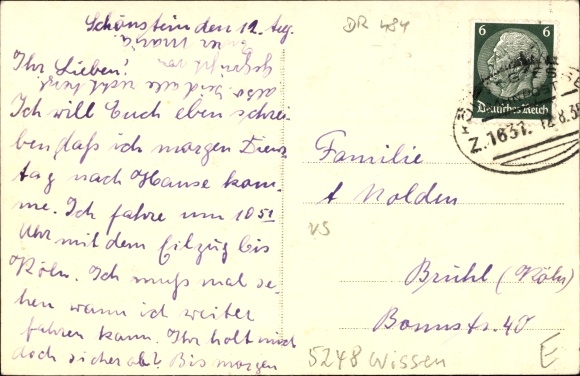 Schönstein den 12. Aug.
Ihr Lieben!
Ich will Euch eben schrei-
ben daß ich morgen Diens-
tag nach Hause kom-
me. Ich fahre um 10 51
Uhr mit dem Eilzug bis
Köln. Ich muß mal se-
hen wann ich weiter
fahren kann. Ihr holt mich
doch sicher ab? Bis morgen
also seid alle recht herzl.
gegrüßt von
Eurer Maria
DR 484
6 6
Deutsches Reich
Z.1637. 12.8.3
Familie
A Nolden
VS
Brühl (Köln)
Bonnstr. 40
5248 Wissen
E